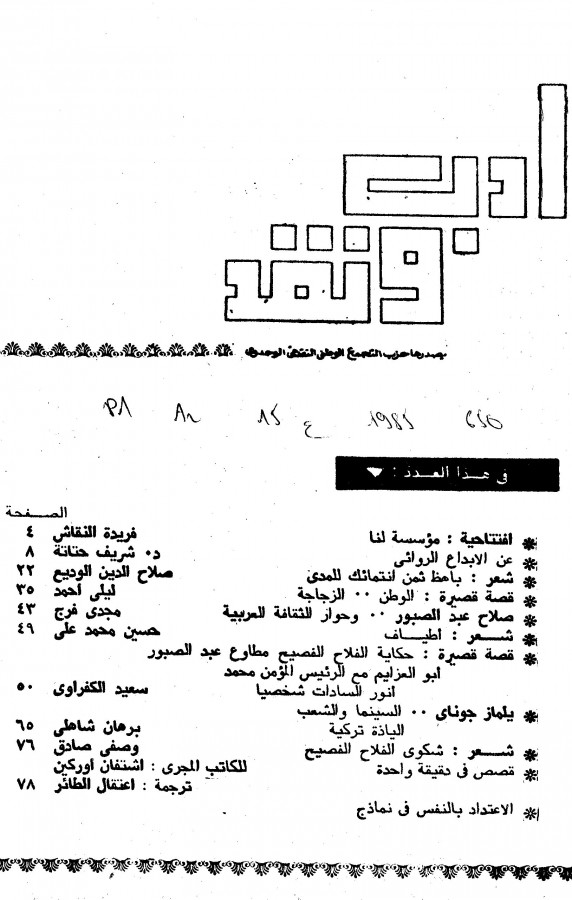 ادب
ونقد
يصدرها حزب التجمع الوطني التقدمى الوحدوى
P1 A2 15 ع 1985 650
فى هذا العدد :
الصفحة
افتتاحية : مؤسسة لنا فريدة النقاش ٤
عن الابداع الروائى د٠ شريف حتاتة ٨
شعر : باهظ ثمن انتمائك للمدى صلاح الدين الوديع ٢٢
قصة قصيرة : الوطن ٠٠ الزجاجة ليلى أحمد ٣٥
صلاح عبد الصبور ٠٠ وحوار الثقافة العربية مجدى فرج ٤٣
شعر : أطياف حسين محمد على ٤٩
قصة قصيرة : حكاية الفلاح الفصيح مطاوع عبد الصبور
أبو العزايم مع الرئيس المؤمن محمد
انور السادات شخصيا سعيد الكفراوى ٥٠
يلماز جوناى ٠٠ السينما والشعب
الياذة تركية برهان شاهلى ٦٥
شعر : شكوى الفلاح الفصيح وصفى صادق ٧٦
قصص فى دقيقة واحدة للكاتب المجرى : اشتفان أوركين
ترجمة : اعتقال الطائر ٧٨
الاعتداد بالنفس فى نماذج